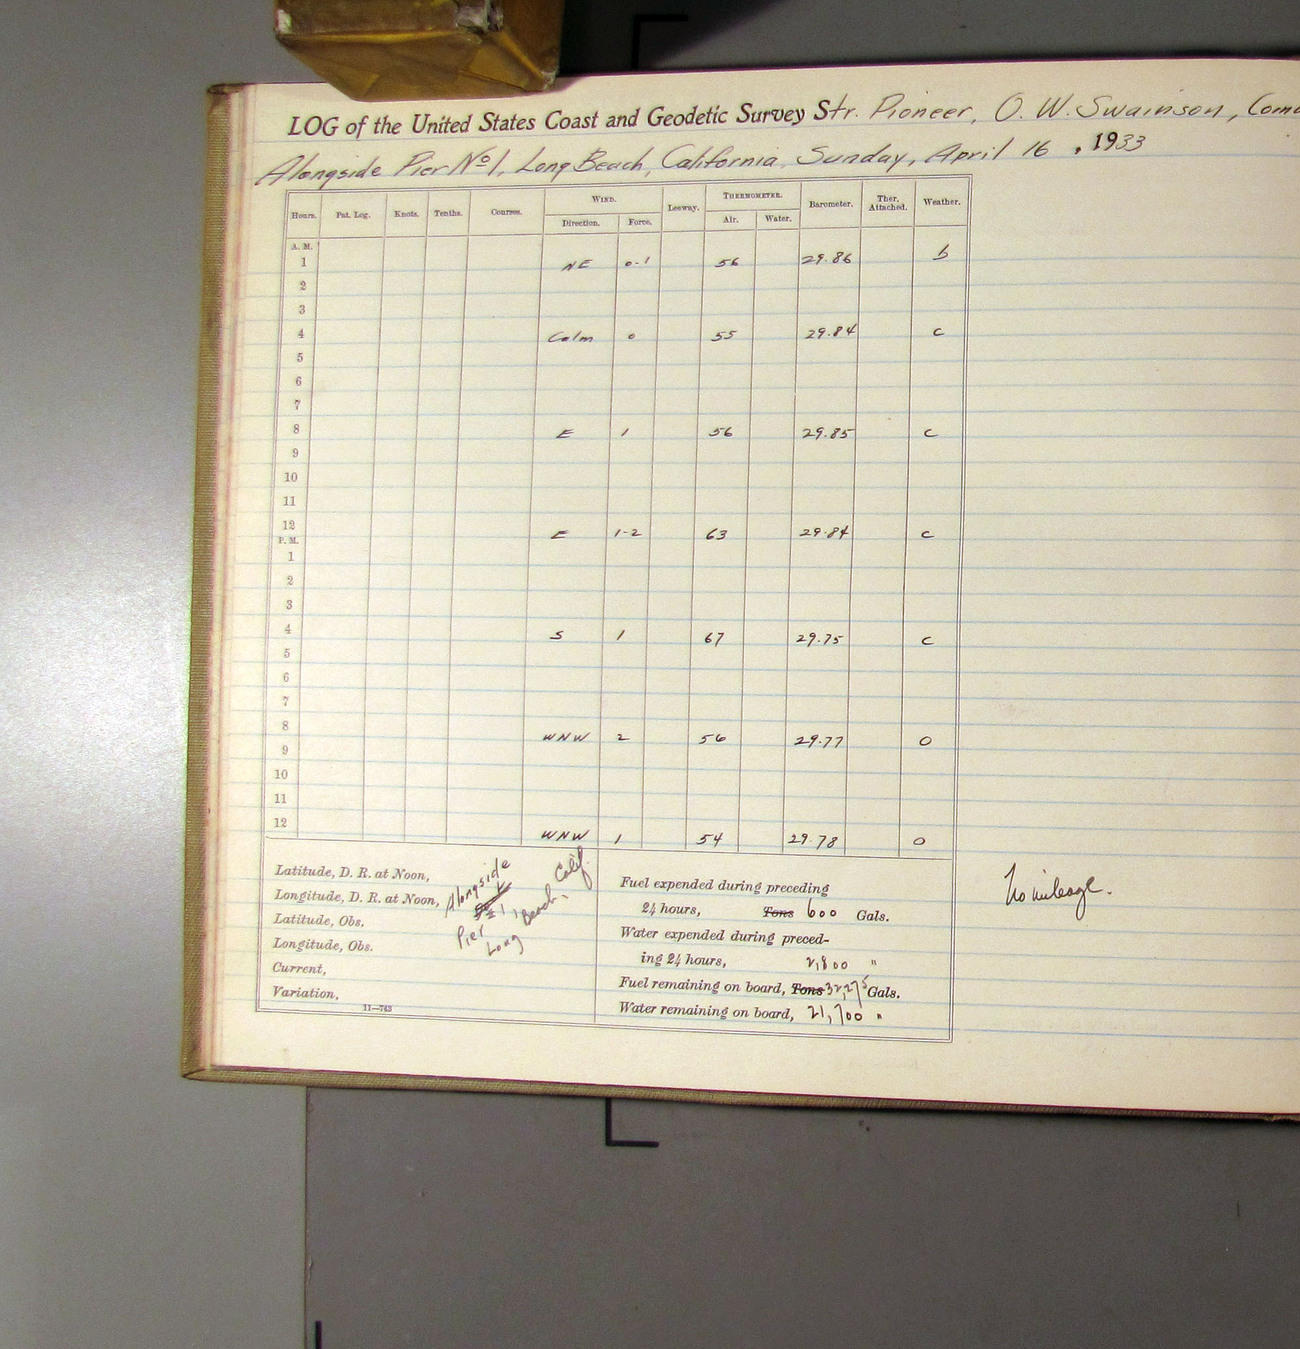 LOG of the United States Coast and Geodetic Survey Str. Pioneer, O. W. Swainson, Comd
Alongside Pier No 1, Long Beach, California, Sunday, April 16, 1933
Hours. Pat. Log. Knots. Tenths. Courses. WIND. Leeway. THERMOMETER. Barometer. Ther. Attached. Weather.
Direction. Force. Air. Water.
A. M.
1 NE 0-1 56 29.86 b
2
3
4 Calm 0 55 29.84 c
5
6
7
8 E 1 56 29.85 c
9
10
11
12 E 1-2 63 29.84 c
P. M.
1
2
3
4 S 1 67 29.75 c
5
6
7
8 WNW 2 56 29.77 o
9
10
11
12 WNW 1 54 29.78 o
Latitude, D. R. at Noon,
Longitude, D. R. at Noon,
Latitude, Obs.
Longitude, Obs.
Current,
Variation,
11—743
Alongside
Pier #1,
Long Beach, Calif.
Fuel expended during preceding
24 hours, Tons 600 Gals.
Water expended during preced-
ing 24 hours, 2,800 "
Fuel remaining on board, Tons 32,275 Gals.
Water remaining on board, 21,700 "
No mileage.